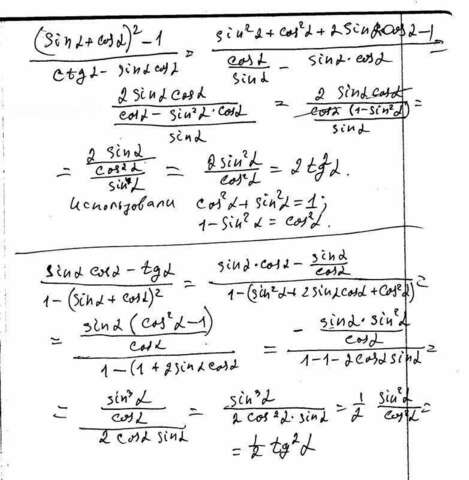 ((sinα+cosα)²-1)/(ctgα-sinαcosα) = (sin²α+cos²α+2sinαcosα-1)/(cosα/sinα - sinα·cosα) =
(2sinαcosα)/((cosα-sin²α·cosα)/sinα) = (2sinαcosα)/((cosα(1-sin²α))/sinα) =
= (2sinα)/(cos²α/sinα) = 2sin²α/cos²α = 2tg²α.
Использовали cos²α+sin²α=1;
1-sin²α=cos²α.
(sinαcosα-tgα)/(1-(sinα+cosα)²) = (sinα·cosα-sinα/cosα)/(1-(sin²α+2sinαcosα+cos²α)) =
= ((sinα(cos²α-1))/cosα)/(1-(1+2sinαcosα) = (-(sinα·sin²α)/cosα)/(1-1-2cosαsinα) =
= (sin³α/cosα)/(2cosαsinα) = sin³α/(2cos²α·sinα) = 1/2 sin²α/cos²α =
= 1/2 tg²α